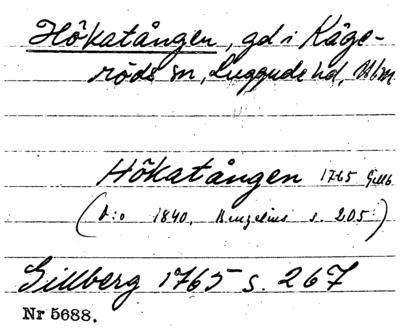 Hökatången, gd i Kåge-
röds sn, Luggude hd, Mlm
Hökatången 1765 Gillb
(d:o 1840, Bengelius s. 205.)
Gillberg 1765 s. 267
Nr 5688.